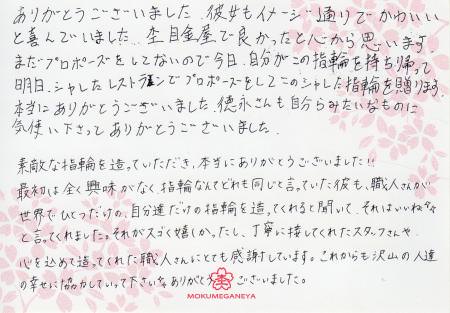 ありがとうございました。彼女もイメージ通りでかわいい
と喜んでいました。杢目金屋で良かったと心から思います。
まだプロポーズをしてないので今日、自分がこの指輪を持ち帰って
明日、シャレたレストランでプロポーズをしてこのシャレた指輪を贈ります。
本当にありがとうございました。徳永さんも自分らみたいなものに
気使い下さってありがとうございました。
素敵な指輪を造っていただき、本当にありがとうございました!!
最初は全く興味がなく、指輪なんてどれも同じと言っていた彼も、職人さんが
世界でひとつだけの、自分達だけの指輪を造ってくれると聞いて、それはいいねぇ
と言ってくれました。それがスゴく嬉しかったし、丁寧に接してくれたスタッフさんや、
心を込めて造ってくれた職人さんにとても感謝しています。これからも沢山の人達
の幸せに協力していって下さいね。ありがとうございました。
MOKUMEGANEYA